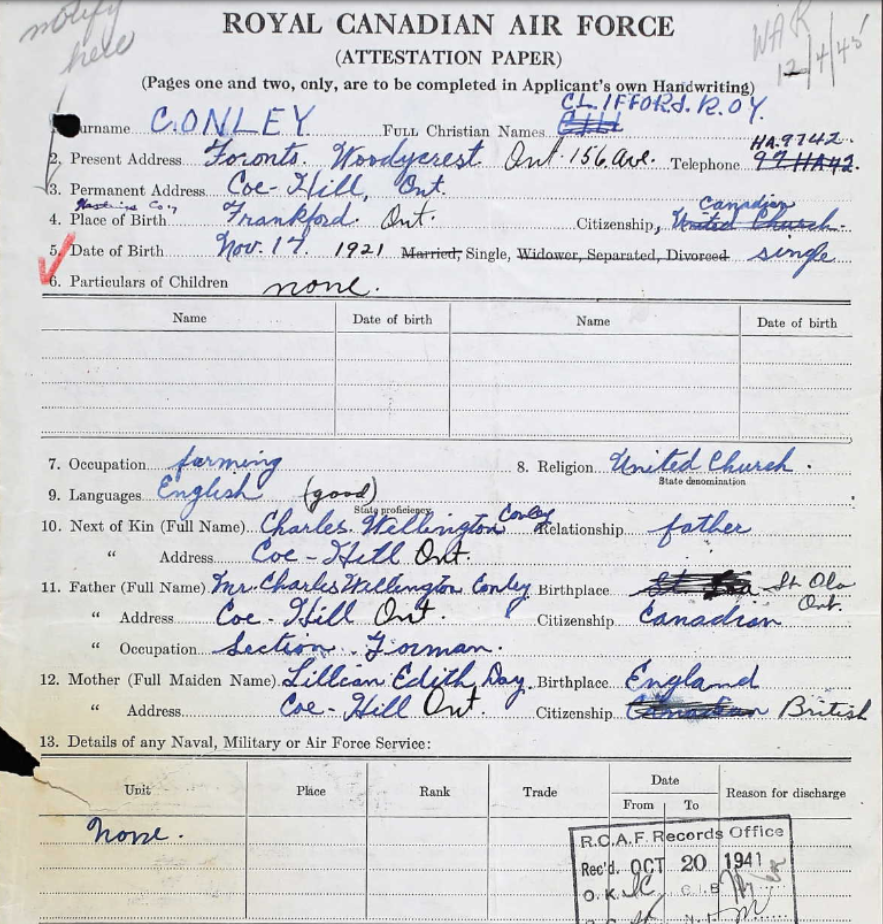 notify here
WAR 12/4/45
ROYAL CANADIAN AIR FORCE
(ATTESTATION PAPER)
(Pages one and two, only, are to be completed in Applicant's own Handwriting)
CLIFFORD. ROY.
urname CONLEY FULL Christian Names
HA.9742
2. Present Address Toronto. Woodycrest Ont. 156 Ave. Telephone 97HA42.
3. Permanent Address Coe-Hill, Ont.
Hastings Coy Canadian
4. Place of Birth Frankford. Ont. Citizenship, United Church.
5. Date of Birth Nov. 17. 1921 Married, Single, Widower, Separated, Divorced single
6. Particulars of Children none.
Name Date of birth Name Date of birth
7. Occupation farming 8. Religion United Church.
State denomination
9. Languages English (good)
State proficiency
10. Next of Kin (Full Name) Charles. Wellington Conley Relationship father
" Address Coe-Hill Ont.
11. Father (Full Name) Mr. Charles Wellington Conley Birthplace St Ola Ont.
" Address Coe-Hill Ont. Citizenship Canadian
" Occupation Section Forman.
12. Mother (Full Maiden Name) Lillian Edith Day. Birthplace England
" Address Coe-Hill Ont. Citizenship Canadian British
13. Details of any Naval, Military or Air Force Service:
Unit Place Rank Trade Date Reason for discharge
From To
none.
R.C.A.F. Records Office
Rec'd. OCT 20 1941
O.K. C.I.B